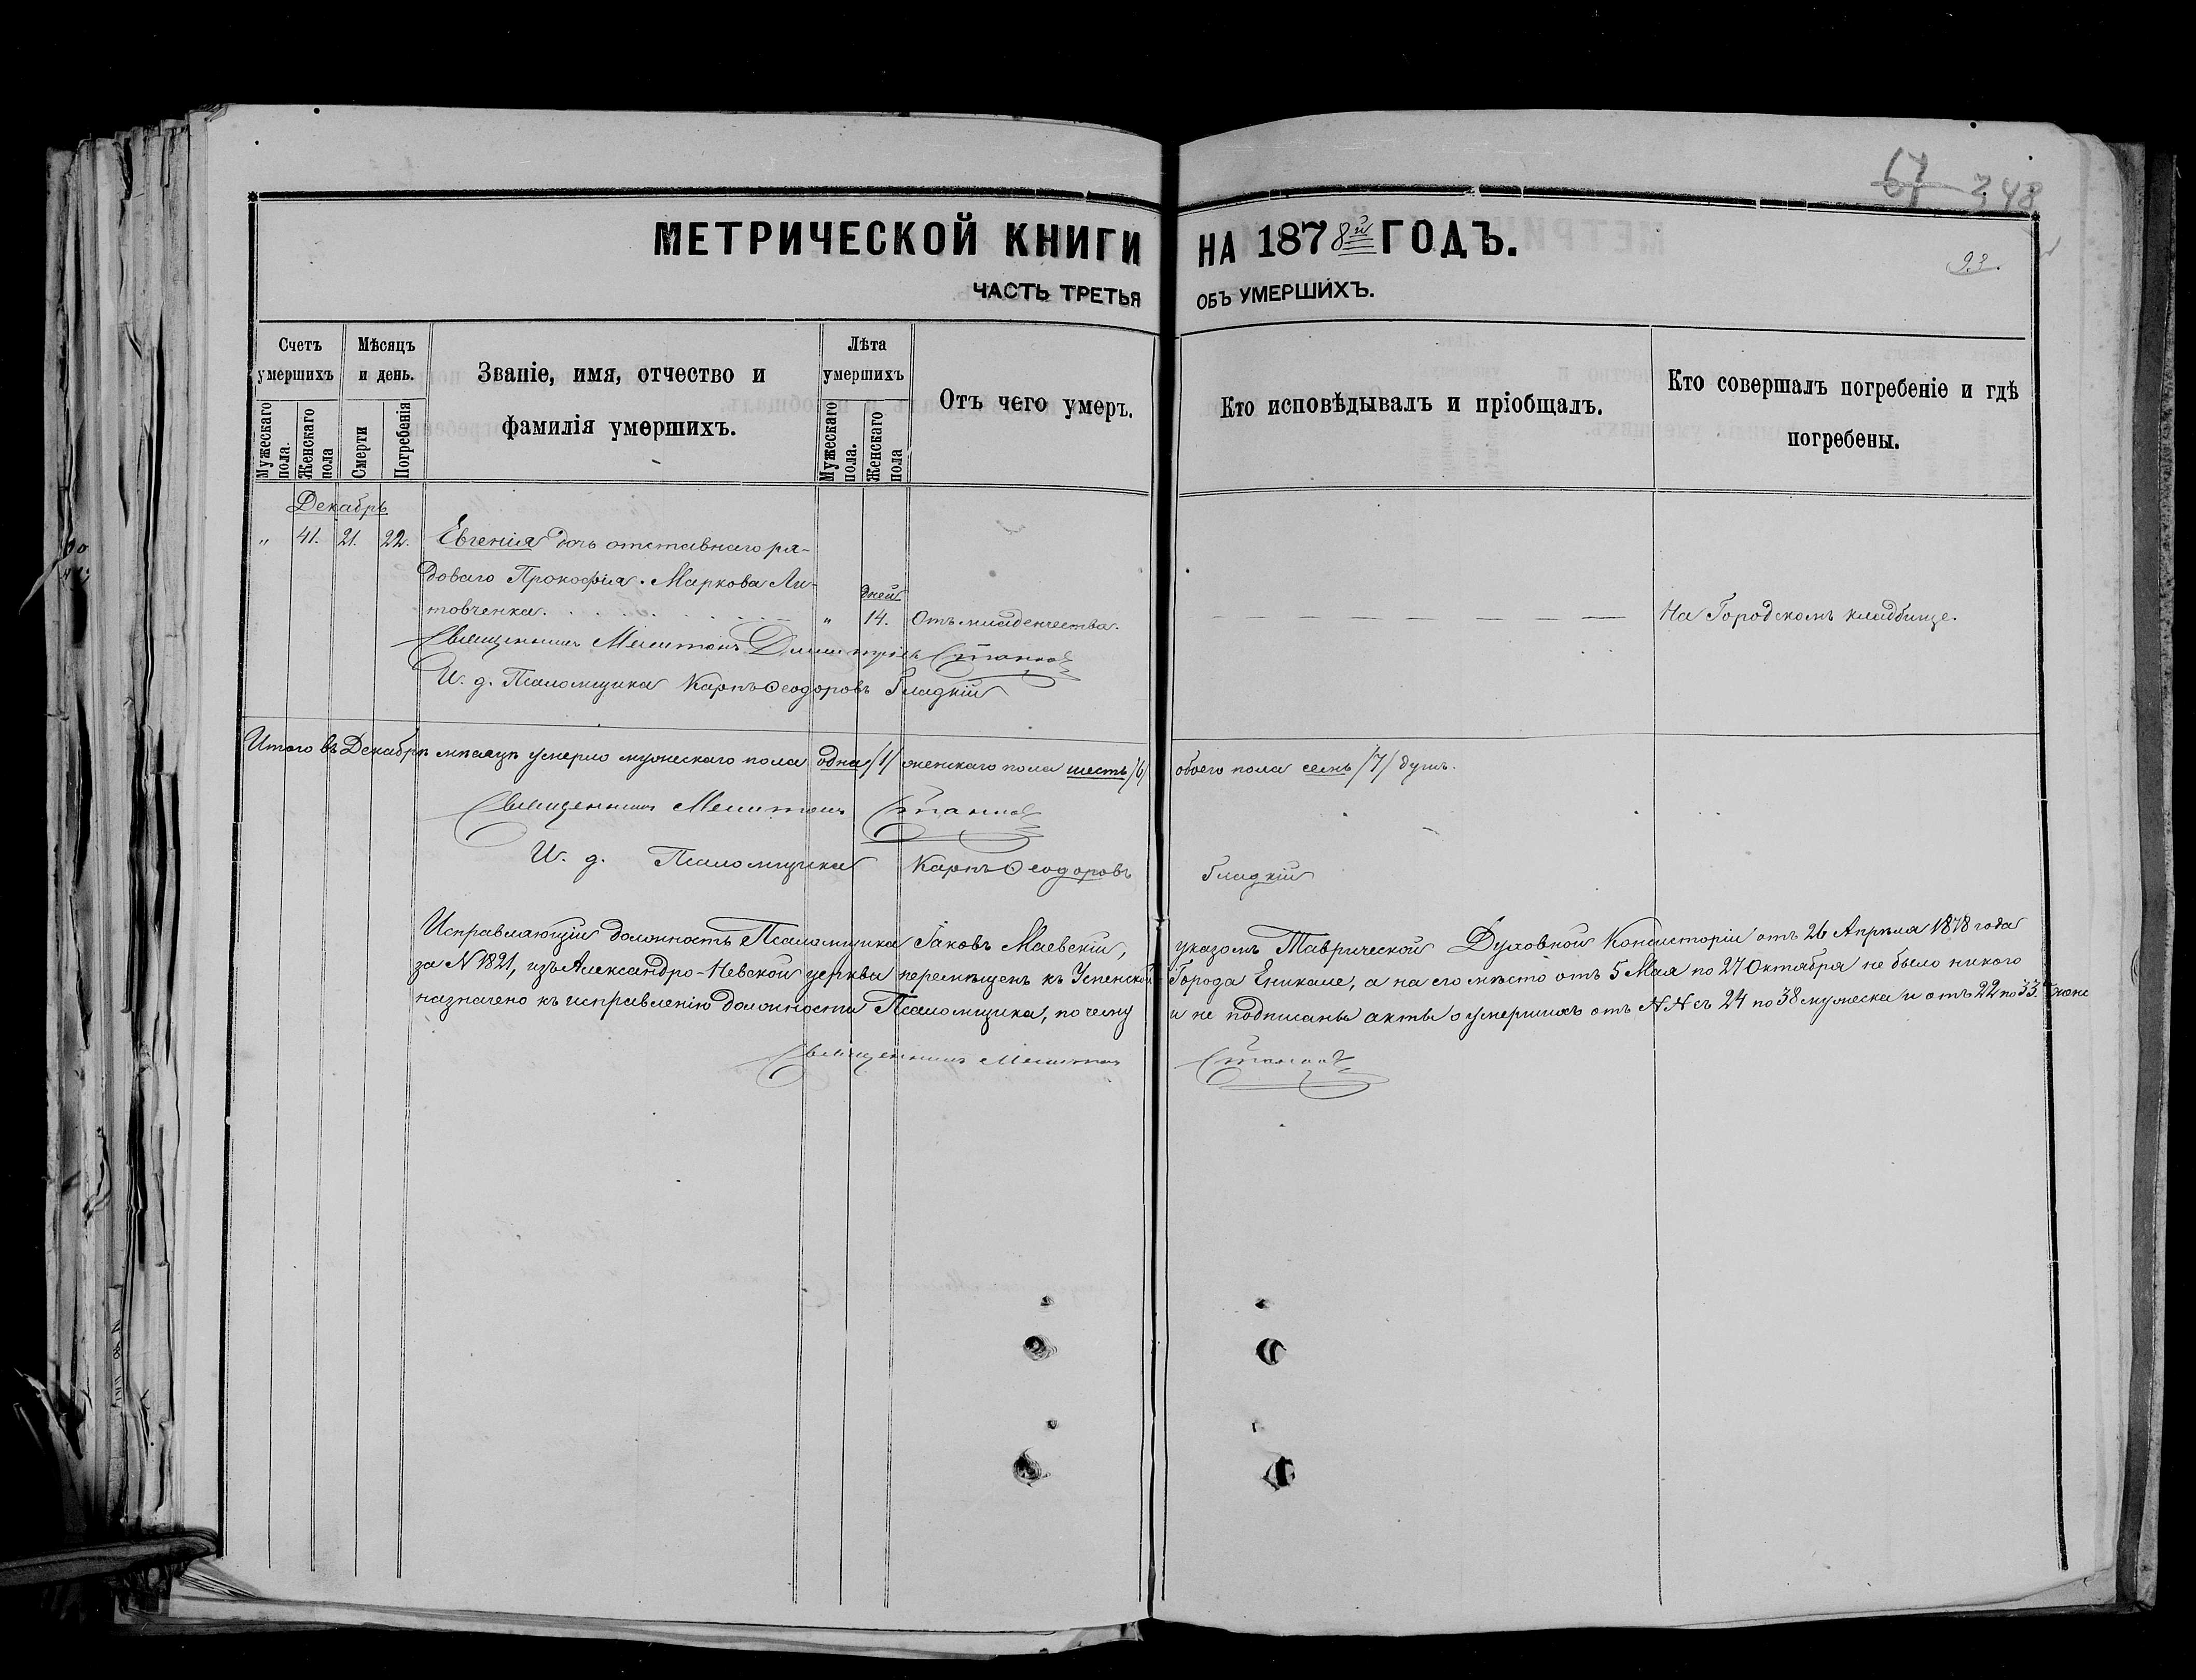 67 348
МЕТРИЧЕСКОЙ КНИГИ НА 1878й ГОДЪ.
93.
ЧАСТЬ ТРЕТЬЯ ОБЪ УМЕРШИХЪ.
Счетъ умершихъ
Мѣсяцъ и день.
Званіе, имя, отчество и фамилія умершихъ.
Лѣта умершихъ
Отъ чего умеръ.
Кто исповѣдывалъ и пріобщалъ.
Кто совершалъ погребеніе и гдѣ погребены.
Мужескаго пола.
Женскаго пола
Смерти
Погребенія
Мужескаго пола.
Женскаго пола
Декабрь
„ 41. 21. 22. Евгенія дочь отставнаго ря-
доваго Прокофія Маркова Ли-
дней
товченка. „ 14. Отъ младенчества. На Городскомъ кладбище.
Священникъ Мелитонъ Димитріевъ
И. д. Псаломщика Карпъ Ѳеодоровъ Гладкій
Итого въ Декабрѣ мѣсяцѣ умерло мужескаго пола одна /1/ женскаго пола шесть /6/ обоего пола семь /7/ душъ.
Священникъ Мелитонъ
И. д. Псаломщика Карпъ Ѳеодоровъ Гладкій
Исправляющій должность Псаломщика Іаковъ Маевскій, указомъ Таврической Духовной Консисторіи отъ 26 Апрѣля 1878 года
за N 1821, изъ Александро-Невской церкви перемѣщенъ къ Успенской Города Еникале, а на его мѣсто отъ 5 Мая по 27 Октября не было никого
назначено къ исправленію должности Псаломщика, по чему и не подписаны акты о умершихъ отъ NN съ 24 по 38 мужеска и отъ 22 по 33. женс
Священникъ Мелитонъ